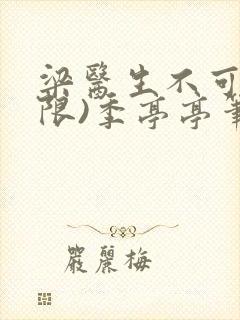 梁醫生不可
限)季亭亭筆
嚴麗梅